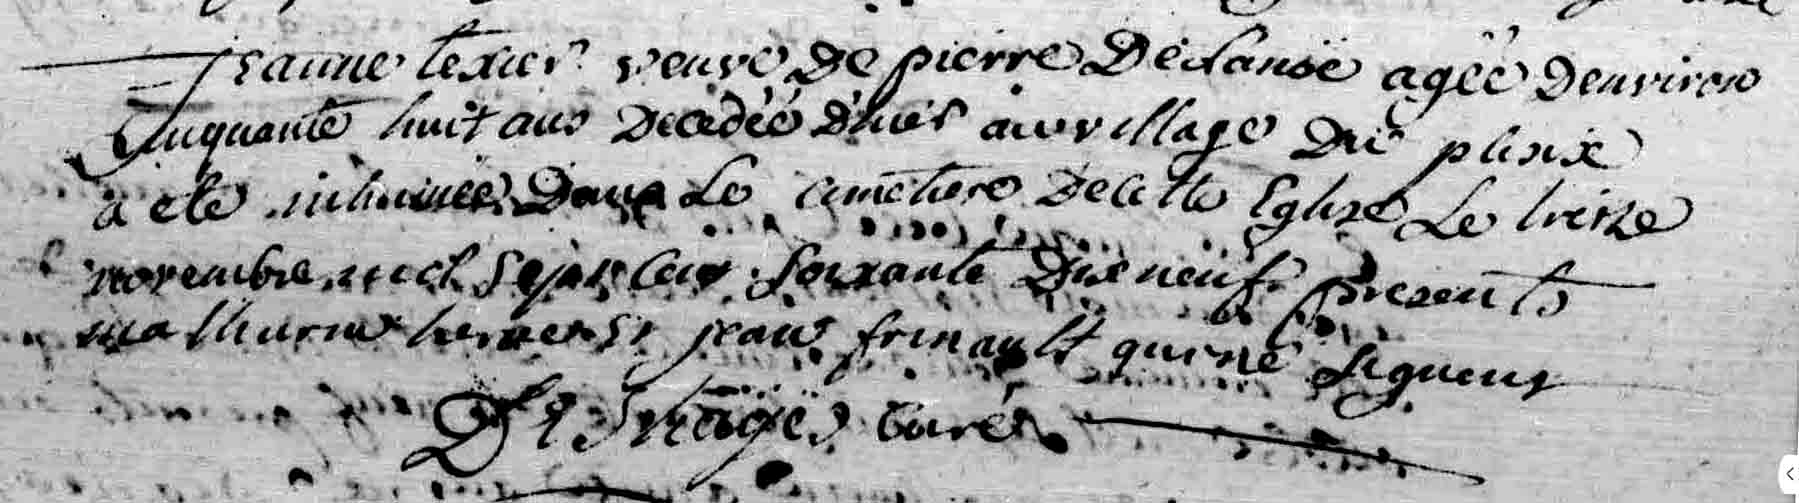 jeanne texier veuve De pierre Delanoë agée Denviron
Cinquante huit ans Decedéé D'hier au village Du plesix
a eté inhumée Dans Le cimetiere De cette Eglise Le treize
novembre mil Sept Cent Soixante Dix neuf presents
mathurin jean frinault qui ne Signent
curé